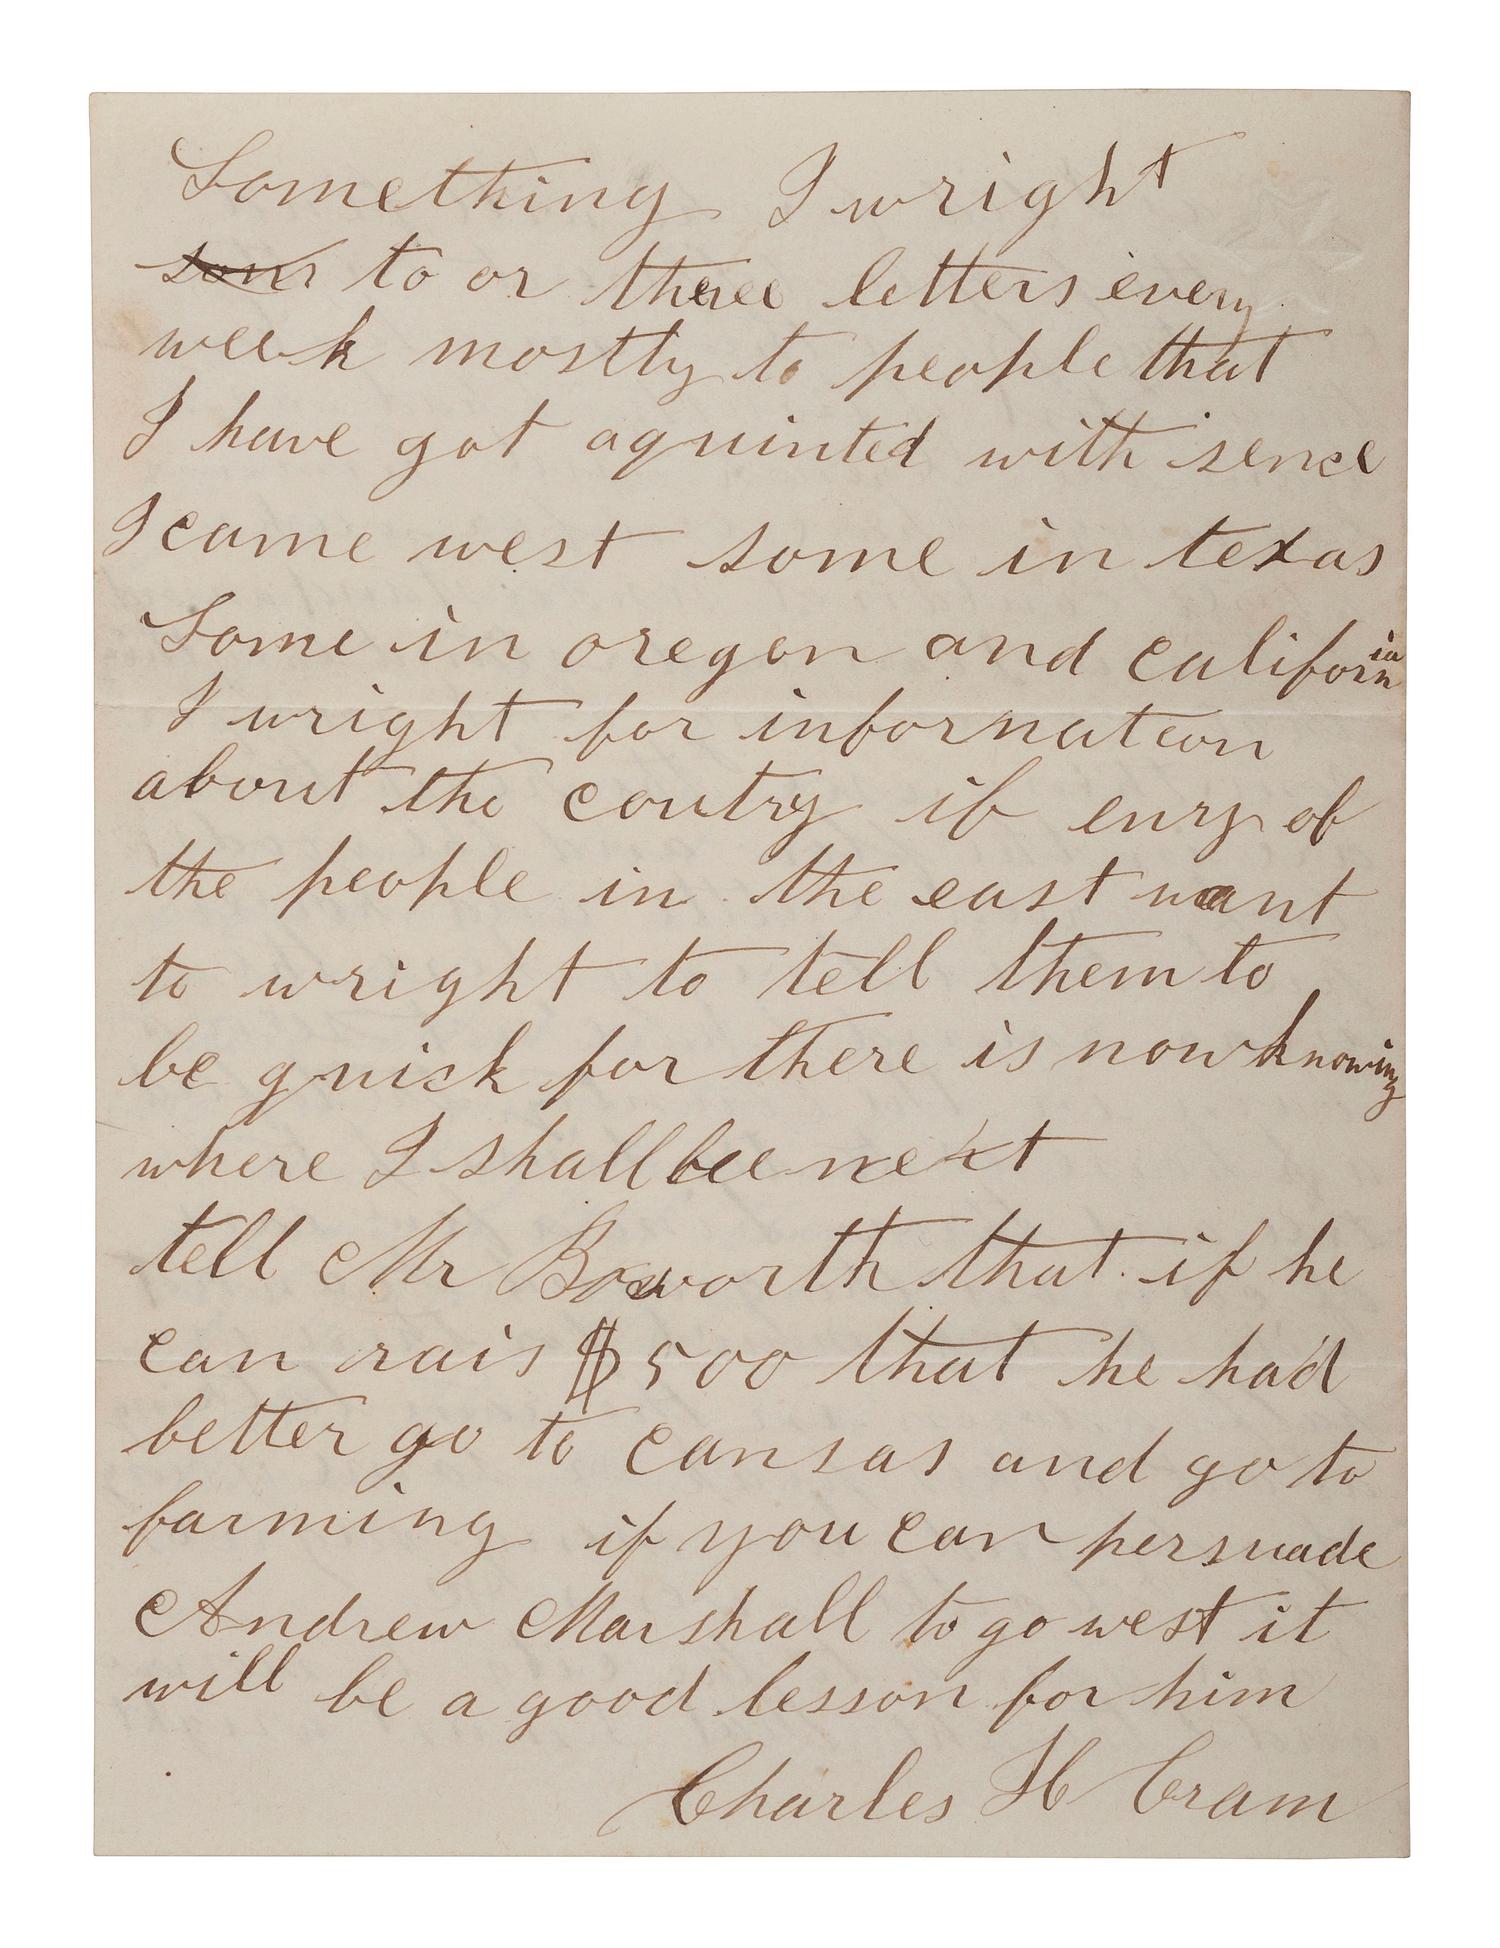 Something I wright
to or thheree letters every
week mostly to people that
I have got aquinted with sence
I came west some in texas
Some in oregon and california
I wright for informateon
about the coutry if enry of
the people in the east want
to wright to tell them to
be quick for there is now knowing
where I shall bee next
tell Mr Bosworth that if he
can rais $500 that he had
better go to cansas and go to
farming if you can persuade
Andrew Marshall to go west it
will be a good lesson for him
Charles H Cram